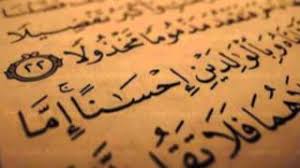 تَفْضِيلًا
فَتَقْعُدَ مَذْمُومًا مَّخْذُولًا ٢٢
وَبِٱلْوَٰلِدَيْنِ إِحْسَٰنًا ۚ إِمَّا
هُمَا فَلَا تَقُل